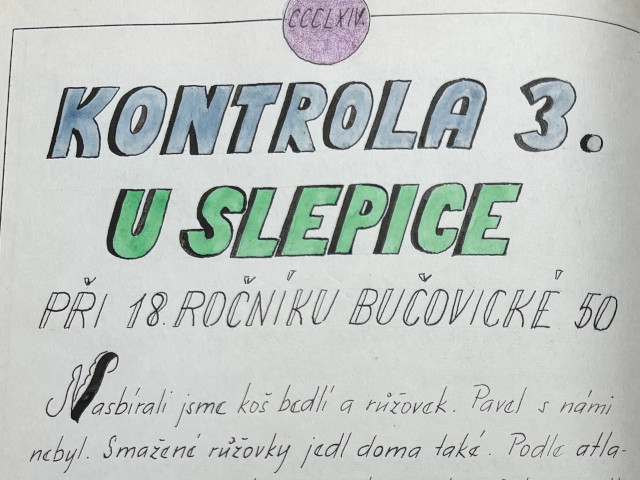 CCCLXIV.
KONTROLA 3.
U SLEPICE
PŘI 18. ROČNÍKU BUČOVICKÉ 50
Nasbírali jsme koš bedlí a růžovek. Pavel s námi
nebyl. Smažené růžovky jedl doma také. Podle atla-